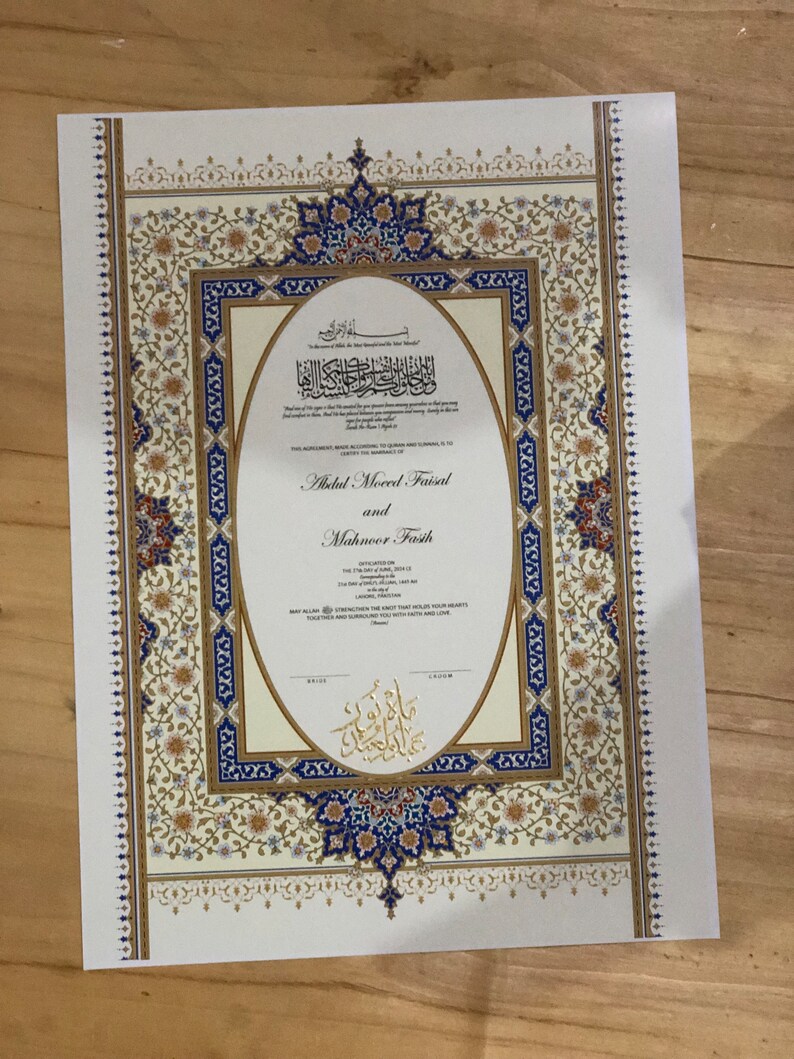 بسم الله الرحمن الرحيم
"In the name of Allah, the Most Graceful and the Most Merciful"
"And one of His signs is that He created for you spouses from among yourselves so that you may
find comfort in them. And He has placed between you compassion and mercy. Surely in this are
signs for people who reflect"
THIS AGREEMENT, MADE ACCORDING TO QURAN AND SUNNAH, IS TO
CERTIFY THE MARRAICE OF
Abdul Moeed Faisal
and
Mahnoor Fasih
OFFICIATED ON
THE 27th DAY of JUNE, 2024 CE
Corresponding to the
21st DAY of DHU'L-HIJJAH, 1445 AH
in the city of
LAHORE, PAKISTAN
MAY ALLAH ﷻ STRENGTHEN THE KNOT THAT HOLDS YOUR HEARTS
TOGETHER AND SURROUND YOU WITH FAITH AND LOVE.
(Ameen)
BRIDE GROOM
ماه نور
عبدالمعید